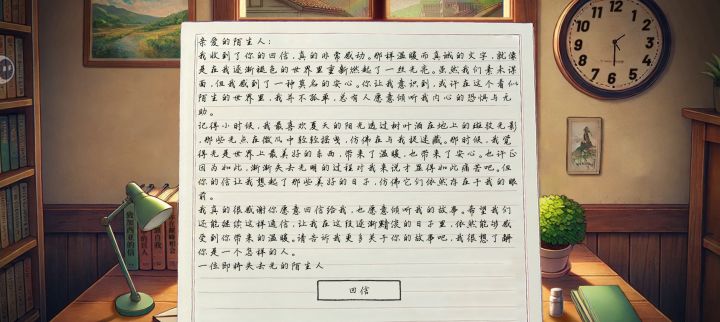 亲爱的陌生人：
我收到了你的回信，真的非常感动。那样温暖而真诚的文字，就像
是在我逐渐褪色的世界里重新燃起了一丝光亮。虽然我们素未谋
面，但我感到了一种莫名的安心。你让我意识到，我许在这个看似
陌生的世界里，我并不孤单，总有人愿意倾听我内心的恐惧与无
助。
记得小时候，我最喜欢夏天的阳光透过树叶洒在地上的斑驳光影
，那些光点在微风中轻轻摇曳，仿佛在与我捉迷藏。那时候，我觉
得光是世界上最美好的东西，带来了温暖，也带来了安心。也许正
因为如此，渐渐失去光明的过程对我来说才显得如此痛苦吧。但
你的信让我想起了那些美好的日子，仿佛它们依然存在于我的眼
前。
我真的很感谢你愿意回信给我，也愿意倾听我的故事。希望我们
还能继续这样通信，让我在这段逐渐黯淡的日子里，依然能够感
受到你带来的温暖。请告诉我更多关于你的故事吧，我很想了解
你是一个怎样的人。
一位即将失去光的陌生人
回信
12
1
2
3
4
5
6
7
8
9
10
11